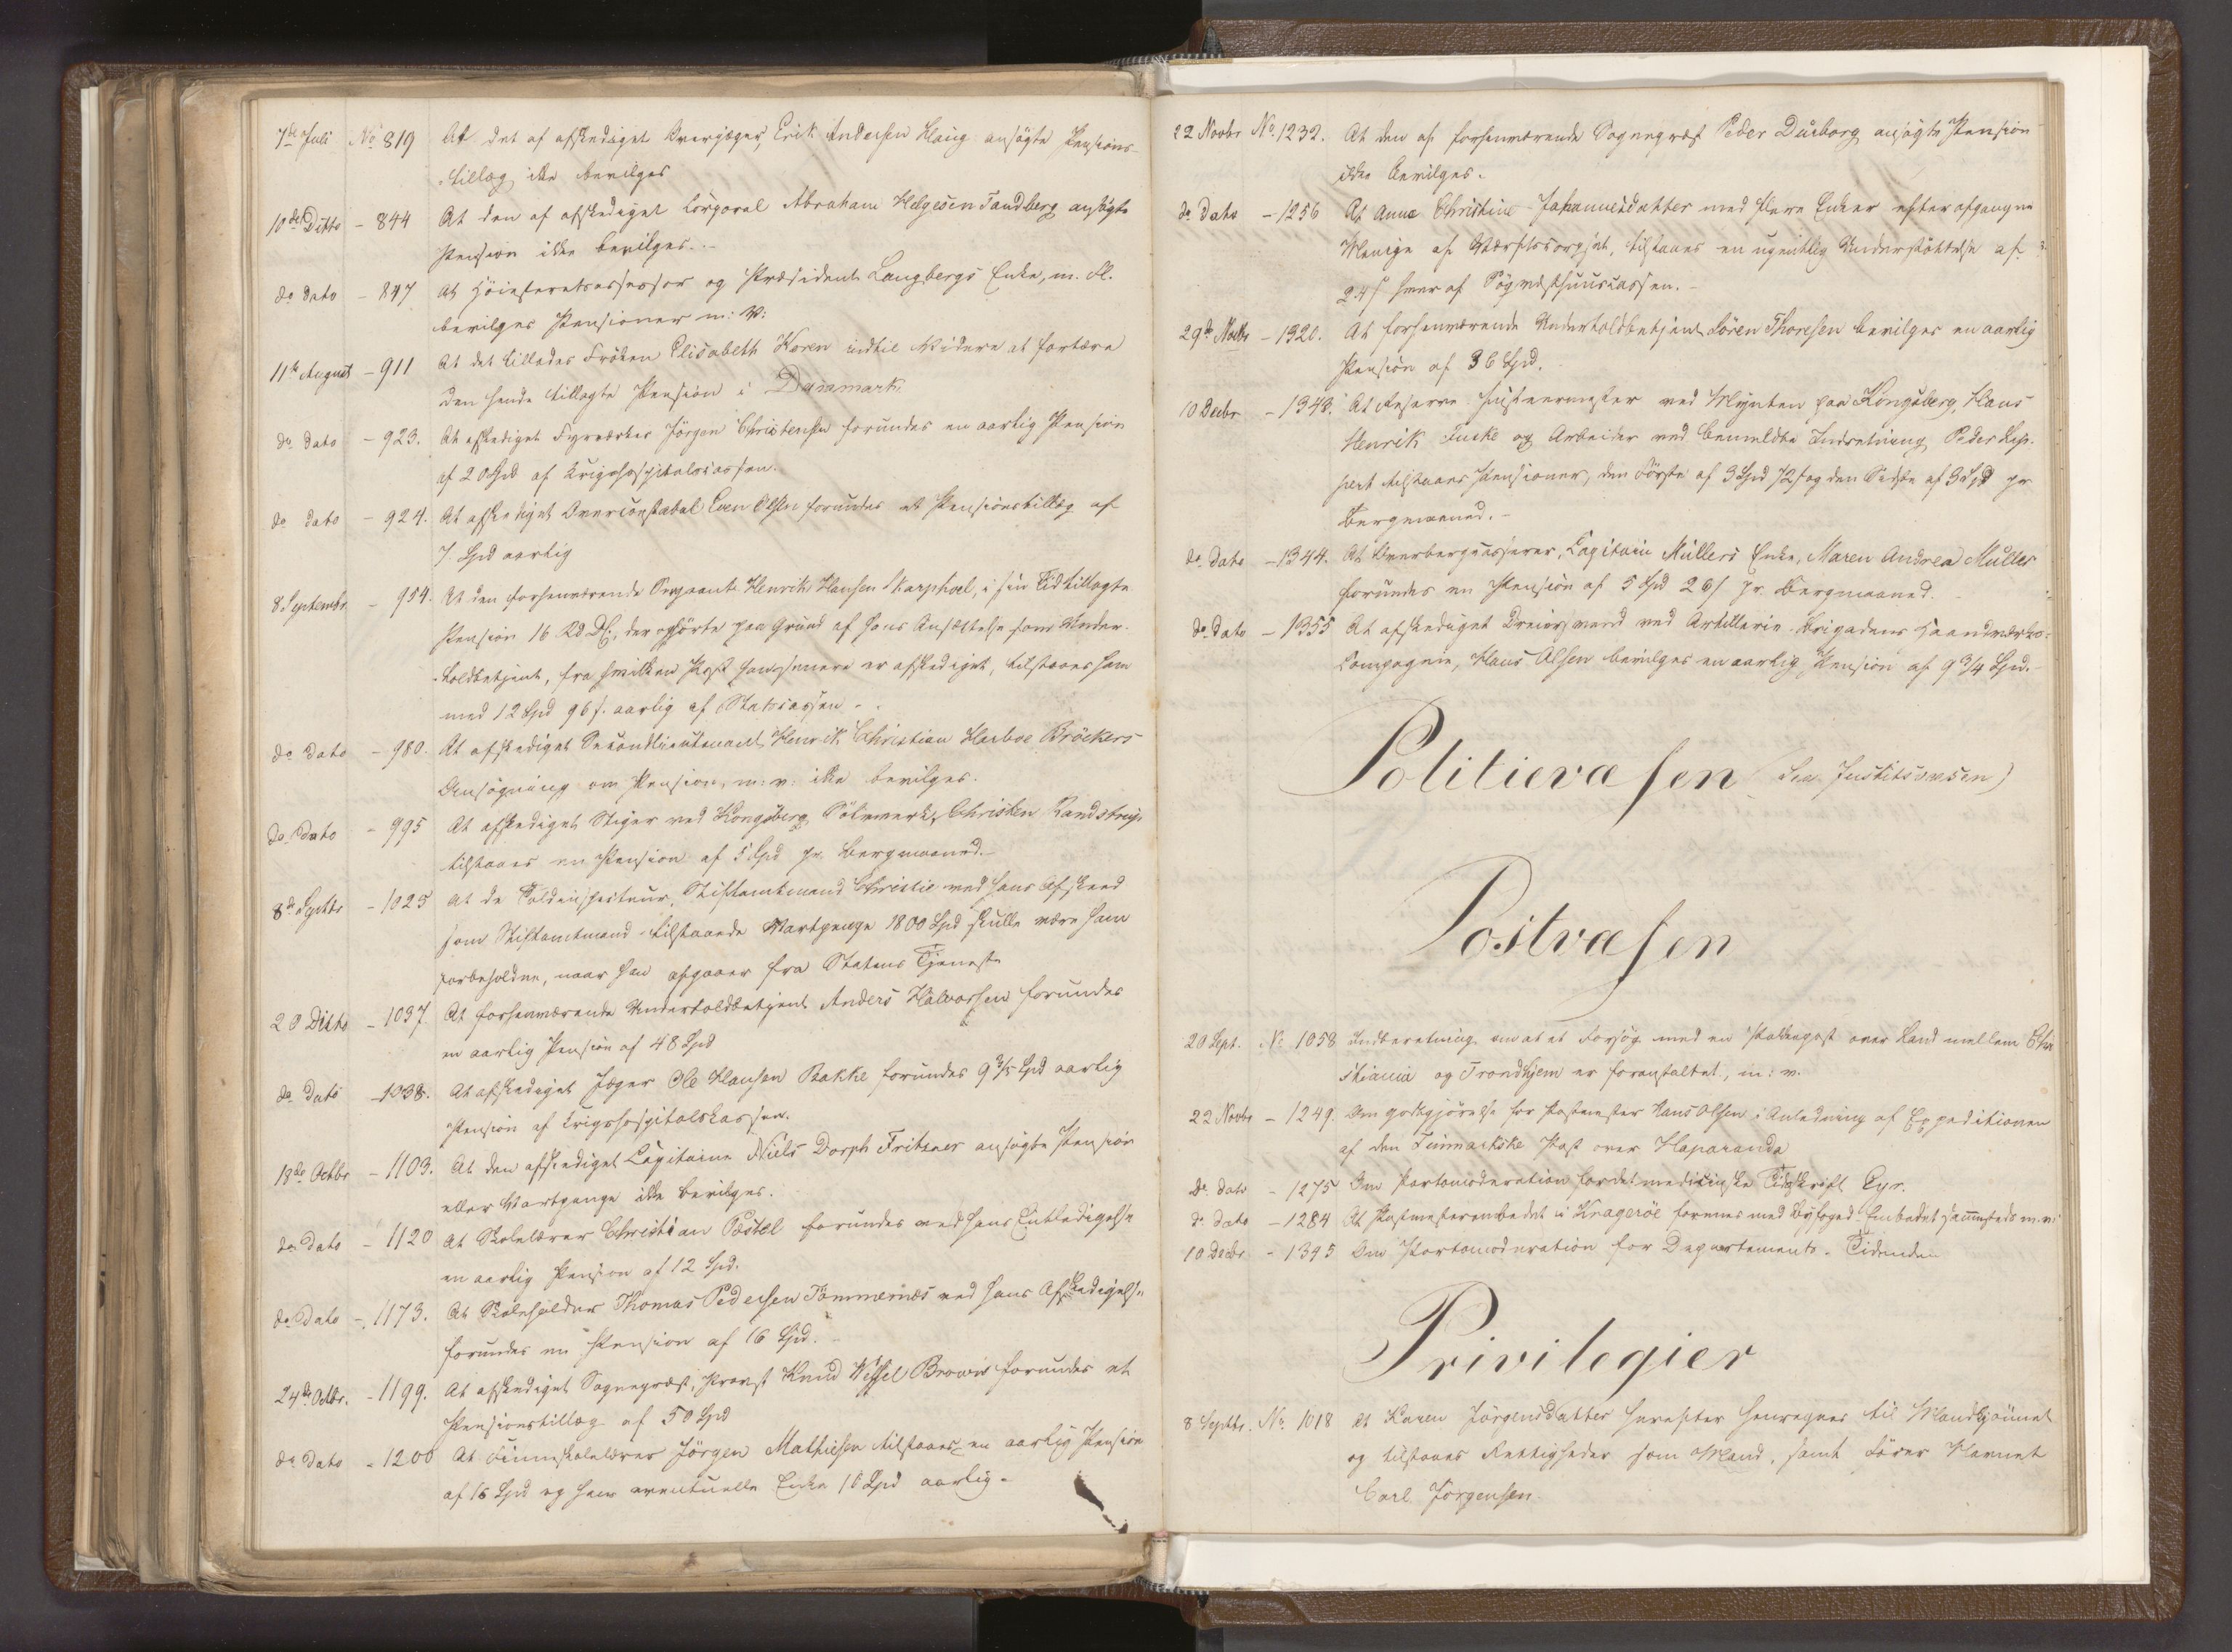 7de Juli No 819 At det af afskediget Overjæger, Erik Andersen Haug ansøgte Pensions-
tillæg ikke bevilges
10de Ditto - 844 At den af afskediget Corporal Abraham Helgesen Sandberg ansøgte
Pension ikke bevilges.
do Dato - 847 At Höiesteretsassessor og Præsident Langbergs Enke, m. Fl.
bevilges Pensioner m: v:
11te August - 911 At det tillades Fröken Elisabeth Koren indtil Videre at fortære
den hende tillagte Pension i Danmark
do dato - 923. At afskediget Fyrværker Jörgen Christensen forundes en aarlig Pension
af 20 Spd af Krigshospitalscassen.
do dato - 924. At afskediget Overconstabel Even Olsen forundes et Pensionstillæg af
7 Spd aarlig
8 Septembr - 954. At den forhenværende Sergeant Henrik Hansen Skarphoel, i sin Tid tillagte
Pension 16 Rd DC., der ophörte paa Grund af hans Ansættelse som Under-
toldbetjent, fra hvilken Post han senere er afskediget, tilstaaes ham
med 12 Spd 96 s. aarlig af Statscassen.
do Dato - 980. At afskediget Secondlieutenant Henrik Christian Herboe Bröckers
Ansøgning om Pension, m: v: ikke bevilges.
do Dato - 995 At afskediget Stiger ved Kongsberg Sölvværk, Christen Sandstrup
tilstaaes en Pension af 5 Spd pr. Bergmaaned.
8de Septbr - 1025 At de Toldinspecteur, Stiftamtmand Christie ved hans Afskeed
som Stiftamtmand tilstaaede Vartpenge 1800 Spd skulle være ham
forbeholdne, naar han afgaaer fra Statens Tjeneste
20 Ditto - 1037. At forhenværende Undertoldbetjent Anders Halvorsen forundes
en aarlig Pension af 48 Spd
do Dato - 1038. At afskediget Jæger Ole Hansen Bakke forundes 9 3/5 Spd aarlig
Pension af Krigshospitalskassen.
18de Octbr - 1103. At den afskediget Capitaine Niels Dorph Fritzner ansøgte Pension
eller Vartpenge ikke bevilges.
do Dato - 1120 At Skolelærer Christian Postel forundes ved hans Entledigelse
en aarlig Pension af 12 Spd.
do Dato - 1173. At Skoleholder Thomas Pedersen Tömmernæs ved hans Afskedigelse
forundes en Pension af 16 Spd.
24de Octbr. - 1199. At afskediget Sognepræst, Provst Knud Wessel Brown forundes et
Pensionstillæg af 50 Spd
do Dato - 1200 At Finneskolelærer Jörgen Mathisen tilstaaes en aarlig Pension
af 16 Spd og hans eventuelle Enke 10 Spd aarlig.
22 Novbr No. 1232. At den af forhenværende Sognepræst Peder Duborg ansøgte Pension
ikke bevilges.
do Dato - 1256 At Anne Christine Johannesdatter med flere Enker efter afgangne
Menige af Værftscorpset, tilstaaes en ugentlig Understöttelse af
24 s hver af Søqvæsthuuscassen.
29de Novbr - 1320. At forhenværende Undertoldbetjent Sören Thoresen bevilges en aarlig
Pension af 36 Spd.
10 Decbr - 1343. At Reserve Justeermester ved Mynten paa Kongsberg, Hans
Henrik Funke og Arbeider ved bemeldte Indretning Peder Lep-
pert tilstaaes Pensioner, den Förste af 3 Spd 72 s og den Sidste af 3 Spd pr
Bergmaaned.
do Dato - 1344. At Overbergcasserer, Capitain Müllers Enke, Maren Andrea Müller
forundes en Pension af 5 Spd 26 s pr. Bergmaaned.
do Dato - 1355 At afskediget Dreiersvend ved Artillerie-Brigadens Haandværks-
Compagnie, Hans Olsen bevilges en aarlig Pension af 9 3/4 Spd.
Politievæsen (See Justitsvæsen)
Postvæsen
20 Sept. No 1058 Indberetning om at et Forsøg med en Pakkepost over Land mellem Chri
stiania og Trondhjem er foranstaltet, m: v.
22 Novbr - 1249. Om godtgjörelse for Postmester Hans Olsen i Anledning af Expeditionen
af den Finmarkske Post over Haparanda
do Dato - 1275 Om Portomoderation for det medicinske Tidsskrift Eyr.
do Dato - 1284 At Postmesterembedet i Krageröe forenes med Byfoged-Embedet sammesteds m. v:
10 Decbr - 1395 Om Portomoderation for Departements-Tidenden
Privilegier
8 Septbr. No. 1018 At Karen Jörgensdatter herefter henregnes til Mandkjönnet
og tilstaaes Rettigheder som Mand, samt förer Navnet
Carl Jörgensen.